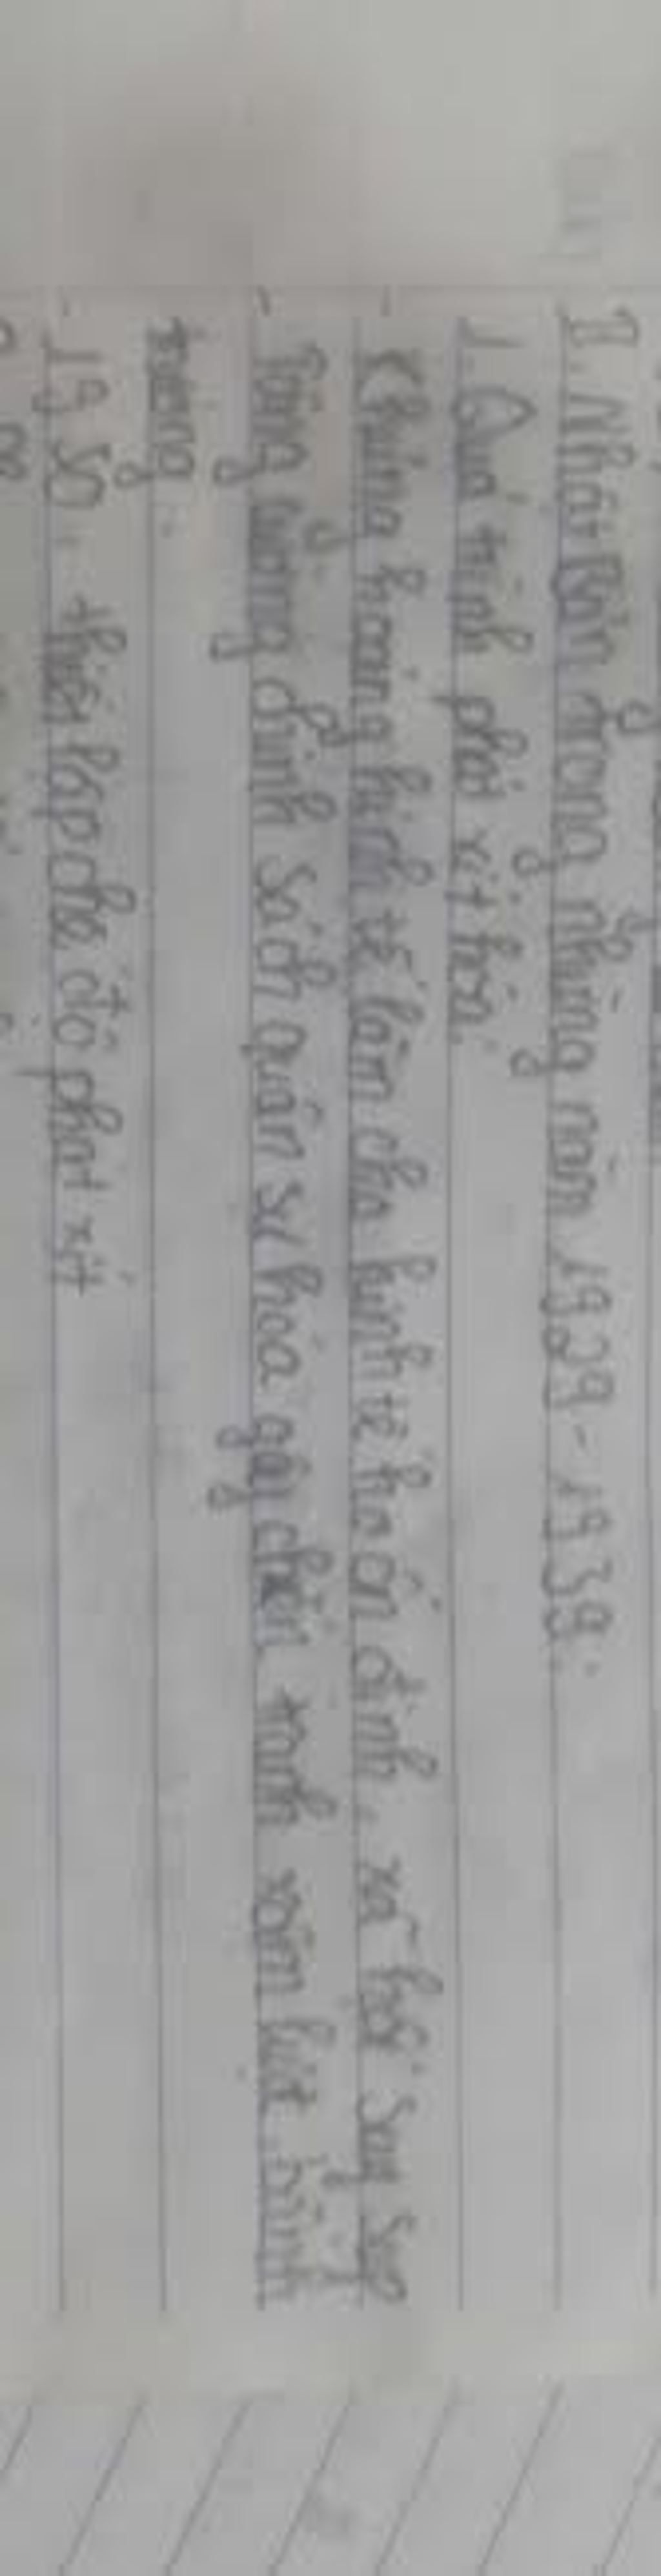 I. Nhật Bản trong những năm 1929-1939.
1. Quá trình phát xít hóa.
- Khủng hoảng kinh tế làm cho kinh tế ko ổn định, xã hội suy sụp
- Tăng cường chính sách quân sự hóa gây chiến tranh xâm lược, bành
trướng.
- 19 30. thiết lập chế độ phát xít